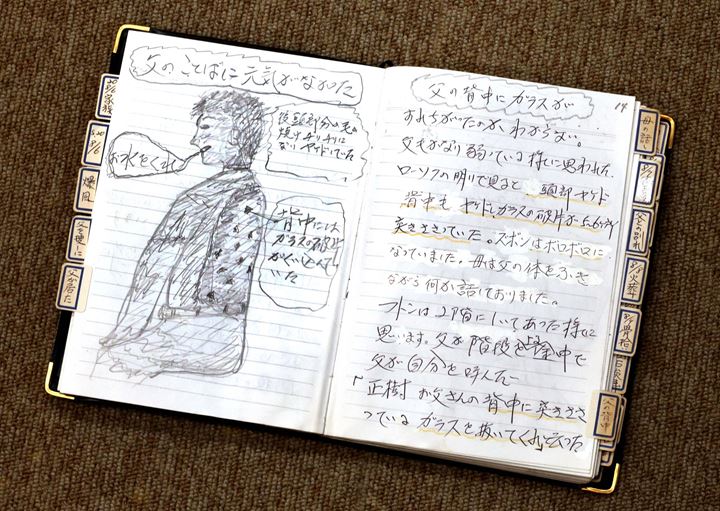 父のことばに元気がなかった
お水をくれ
後頭部分の毛
焼けチリチリに
なりヤケドしていた
背中には
ガラスの破片
がくい込んで
いた
20
8/6家族
20
8/6
爆風
父が居た
父の背中にガラスが
14
父もかなり弱っている様に思われた。
ローソクの明りで見ると頭部ヤケド
背中もヤケドとガラスの破片が5、6ヶ所
突きささっていた。ズボンはボロボロに
なっていました。母は父の体をふき
ながら何か話しておりました。
フトンは2階にしいてあった様に
思います。父が階段を上る途中で
父が自分を呼んだ
「正樹 お父さんの背中に突きささ
っているガラスを抜いてくれ」と云った
母の話
父との別れ
8/8火葬
8/9骨拾
父の背中